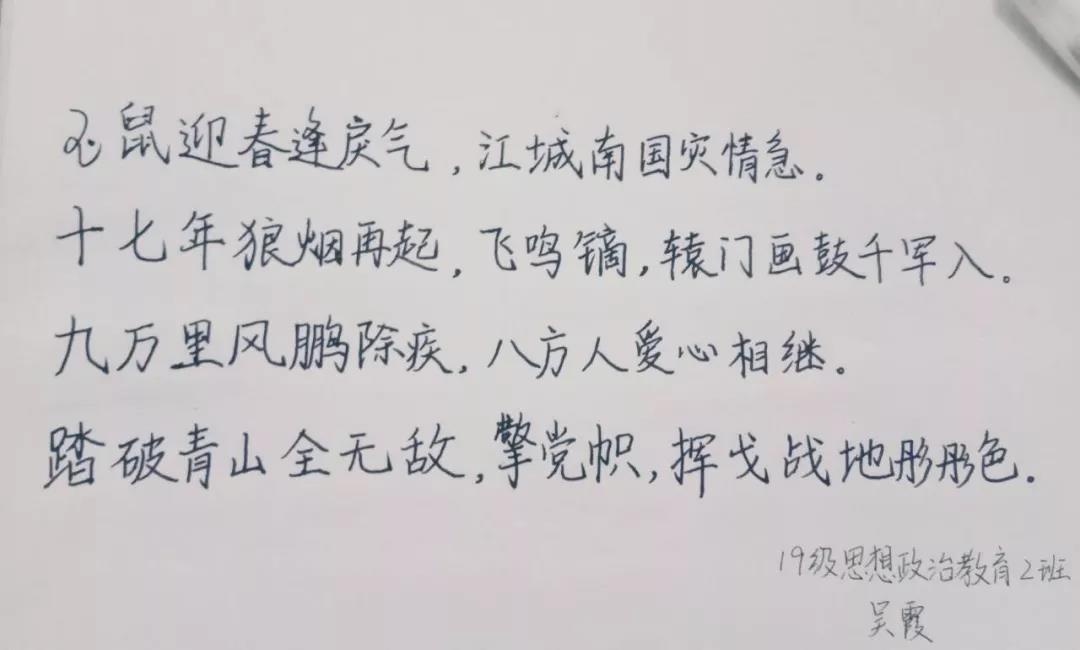 玉鼠迎春逢戾气，江城南国灾情急。
十七年狼烟再起，飞鸣镝，辕门画鼓千军入。
九万里风鹏除疾，八方人爱心相继。
踏破青山全无敌，擎党帜，挥戈战地彤彤色.
19级思想政治教育2班
吴霞